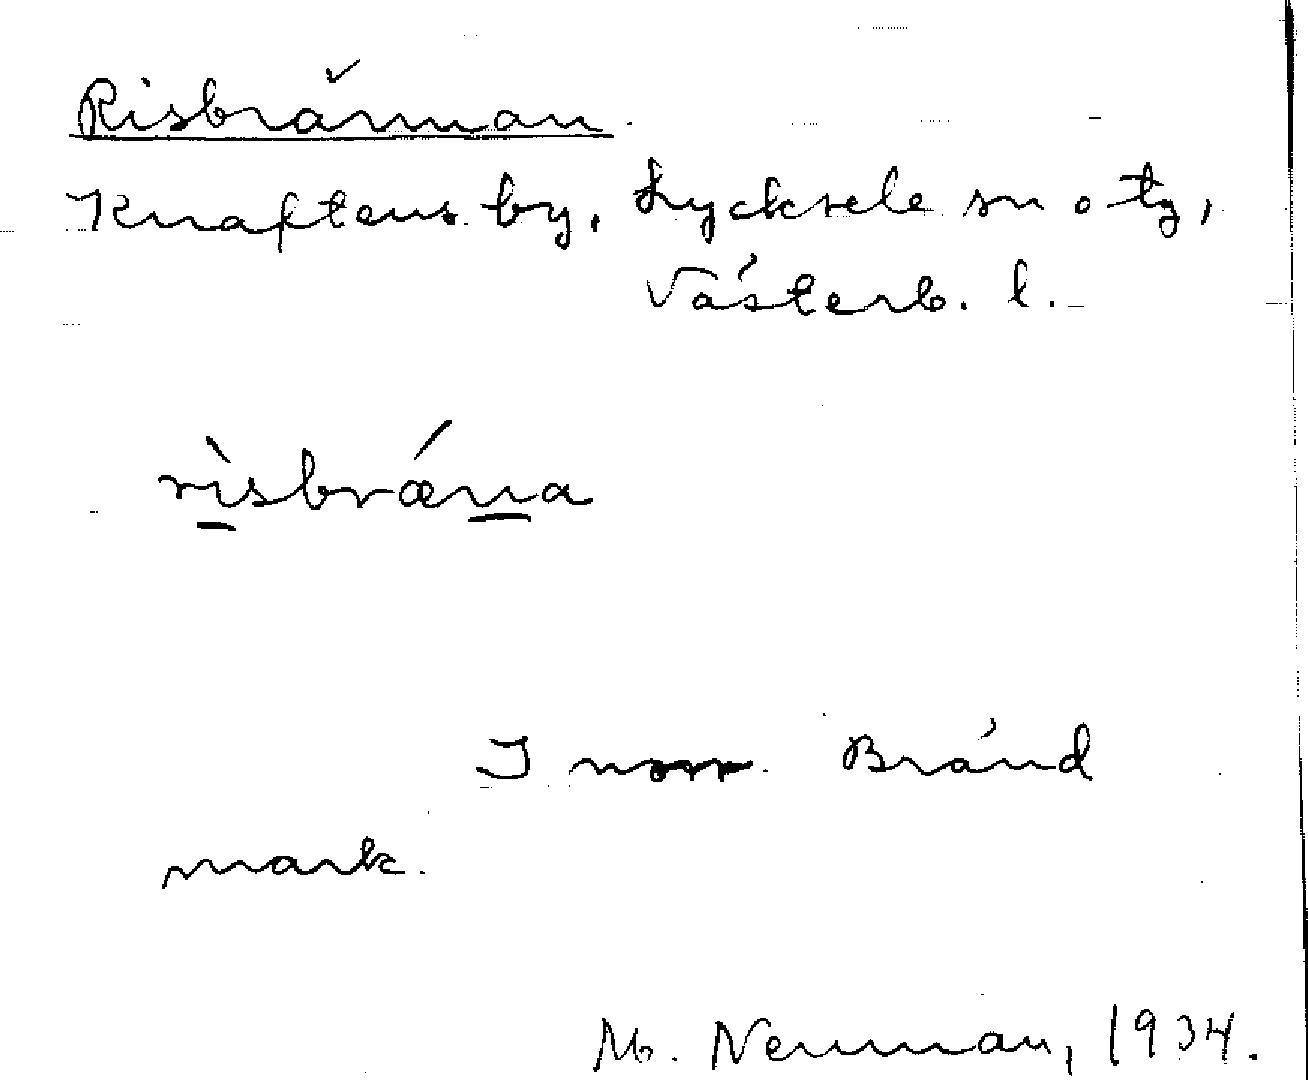 Risbrännan.
Knaftens by, Lycksele sn o tg,
Västerb. l.
rìsbrǽna
I norr. Bränd
mark.
M. Neuman, 1934.